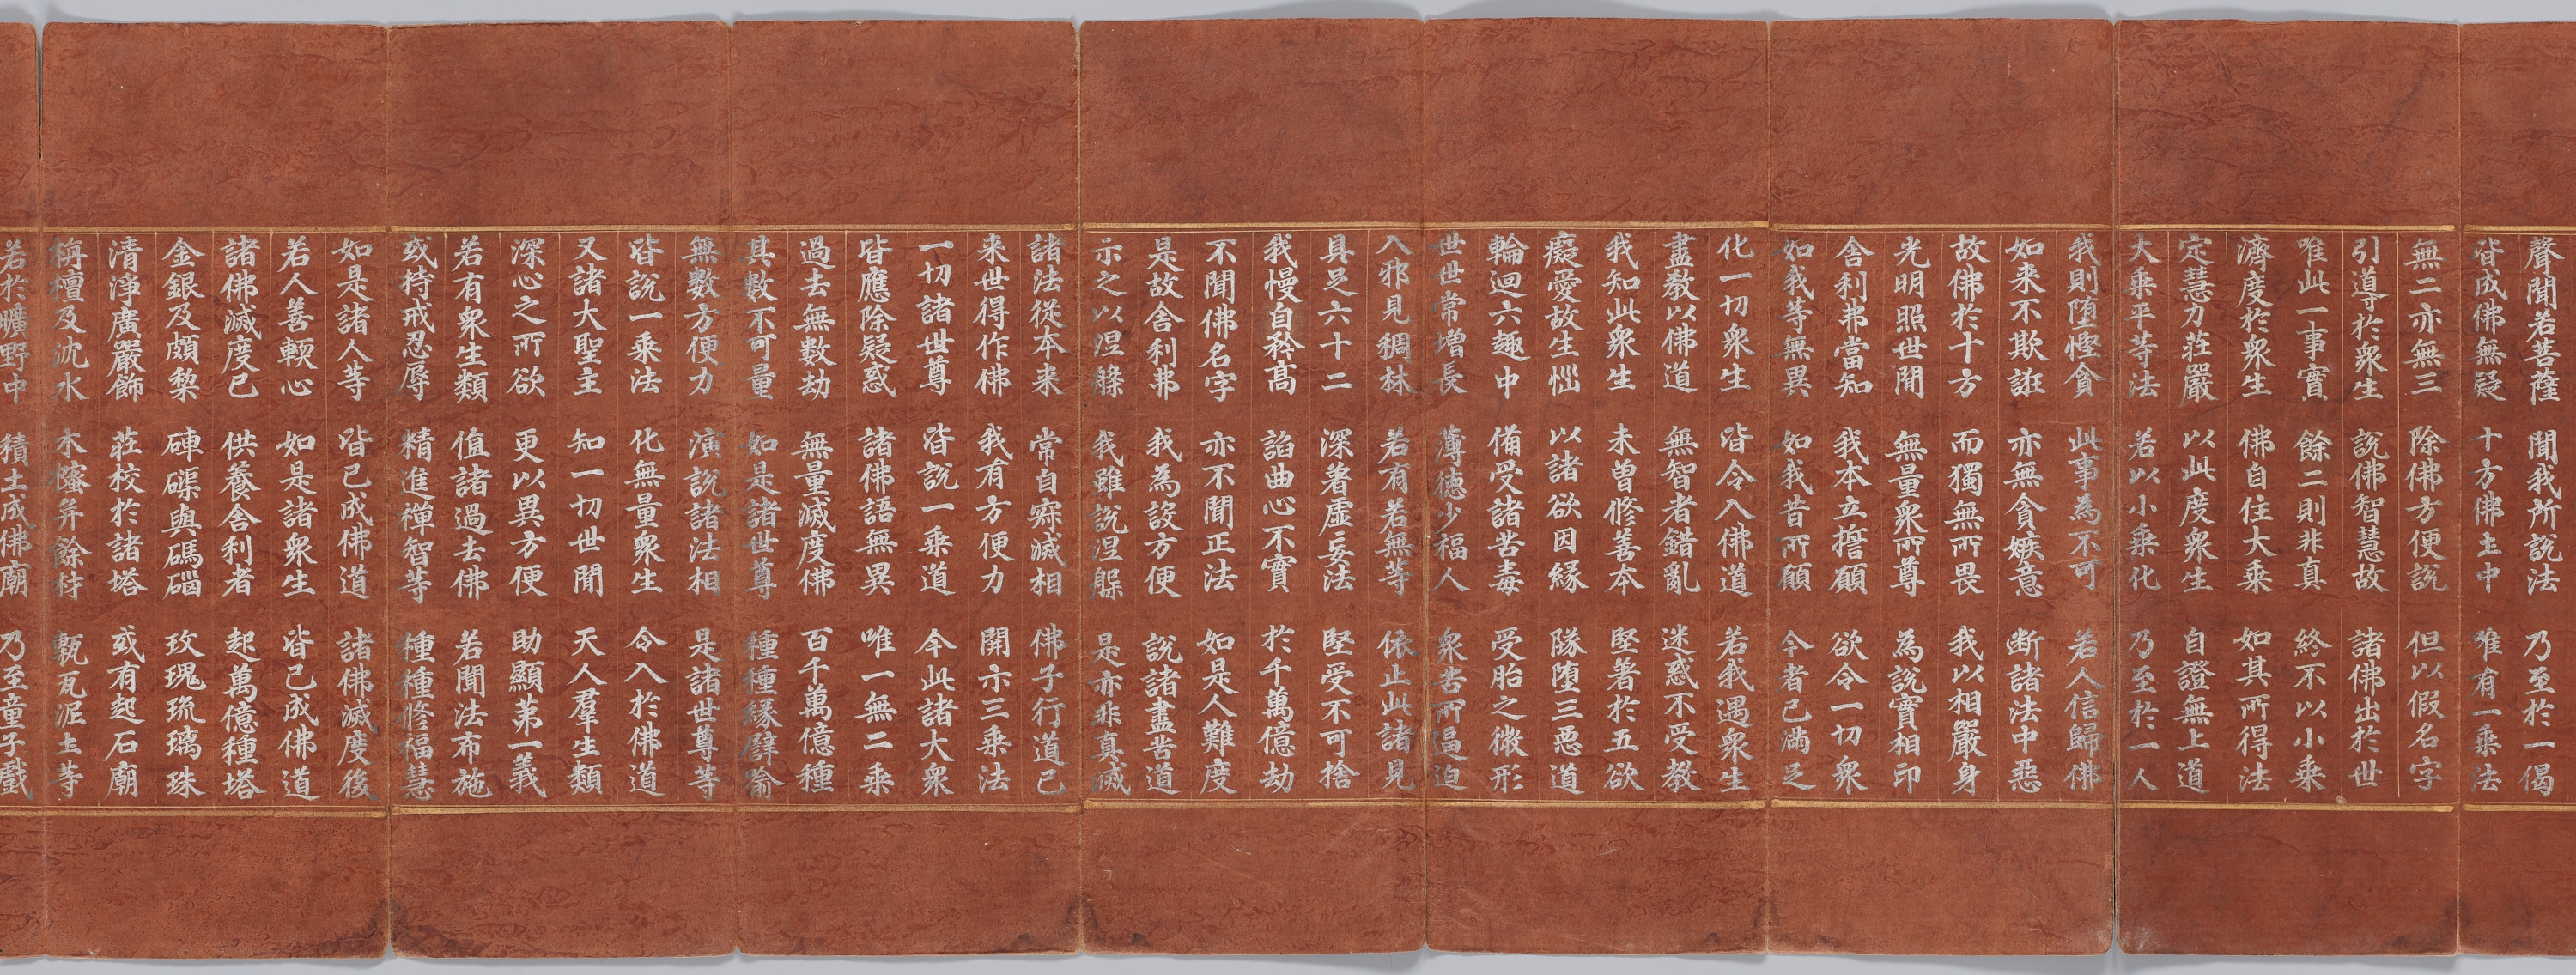 聲聞若菩薩 聞我所說法 乃至於一偈
皆成佛無疑 十方佛土中 唯有一乘法
無二亦無三 除佛方便說 但以假名字
引導於衆生 說佛智慧故 諸佛出於世
唯此一事實 餘二則非真 終不以小乘
濟度於衆生 佛自住大乘 如其所得法
定慧力莊嚴 以此度衆生 自證無上道
大乘平等法 若以小乘化 乃至於一人
我則堕慳貪 此事為不可 若人信歸佛
如来不欺誑 亦無貪嫉意 断諸法中惡
故佛於十方 而獨無所畏 我以相嚴身
光明照世間 無量衆所尊 為說實相印
舍利弗當知 我本立擔願 欲令一切衆
如我等無異 如我昔所願 今者已滿足
化一切衆生 皆令入佛道 若我遇衆生
盡教以佛道 無智者錯亂 迷惑不受教
我知此衆生 未曾修善本 堅著於五欲
癡愛故生惱 以諸欲因緣 隊堕三惡道
輪迴六趣中 備受諸苦毒 受胎之微形
世世常增長 薄德少福人 衆苦所逼迫
入邪見稠林 若有若無等 依止此諸見
具足六十二 深著虛妄法 堅受不可捨
我慢自矜高 諂曲心不實 於千萬億劫
不聞佛名字 亦不聞正法 如是人難度
是故舍利弗 我為設方便 說諸盡苦道
示之以涅槃 我雖說涅槃 是亦非真滅
諸法從本来 常自寂滅相 佛子行道已
来世得作佛 我有方便力 開示三乘法
一切諸世尊 皆說一乘道 今此諸大衆
皆應除疑惑 諸佛語無異 唯一無二乘
過去無數劫 無量滅度佛 百千萬億種
其數不可量 如是諸世尊 種種緣譬喻
無數方便力 演說諸法相 是諸世尊等
皆說一乘法 化無量衆生 令入於佛道
又諸大聖主 知一切世間 天人羣生類
深心之所欲 更以異方便 助顯第一義
若有衆生類 值諸過去佛 若聞法布施
或持戒忍辱 精進禪智等 種種修福慧
如是諸人等 皆已成佛道 諸佛滅度後
若人善軟心 如是諸衆生 皆已成佛道
諸佛滅度已 供養舍利者 起萬億種塔
金銀及頗黎 硨磲與碼碯 玫瑰琉璃珠
清淨廣嚴飾 莊校於諸塔 或有起石廟
栴檀及沈水 木櫁并餘材 甎瓦泥土等
若於曠野中 積土成佛廟 乃至童子戲